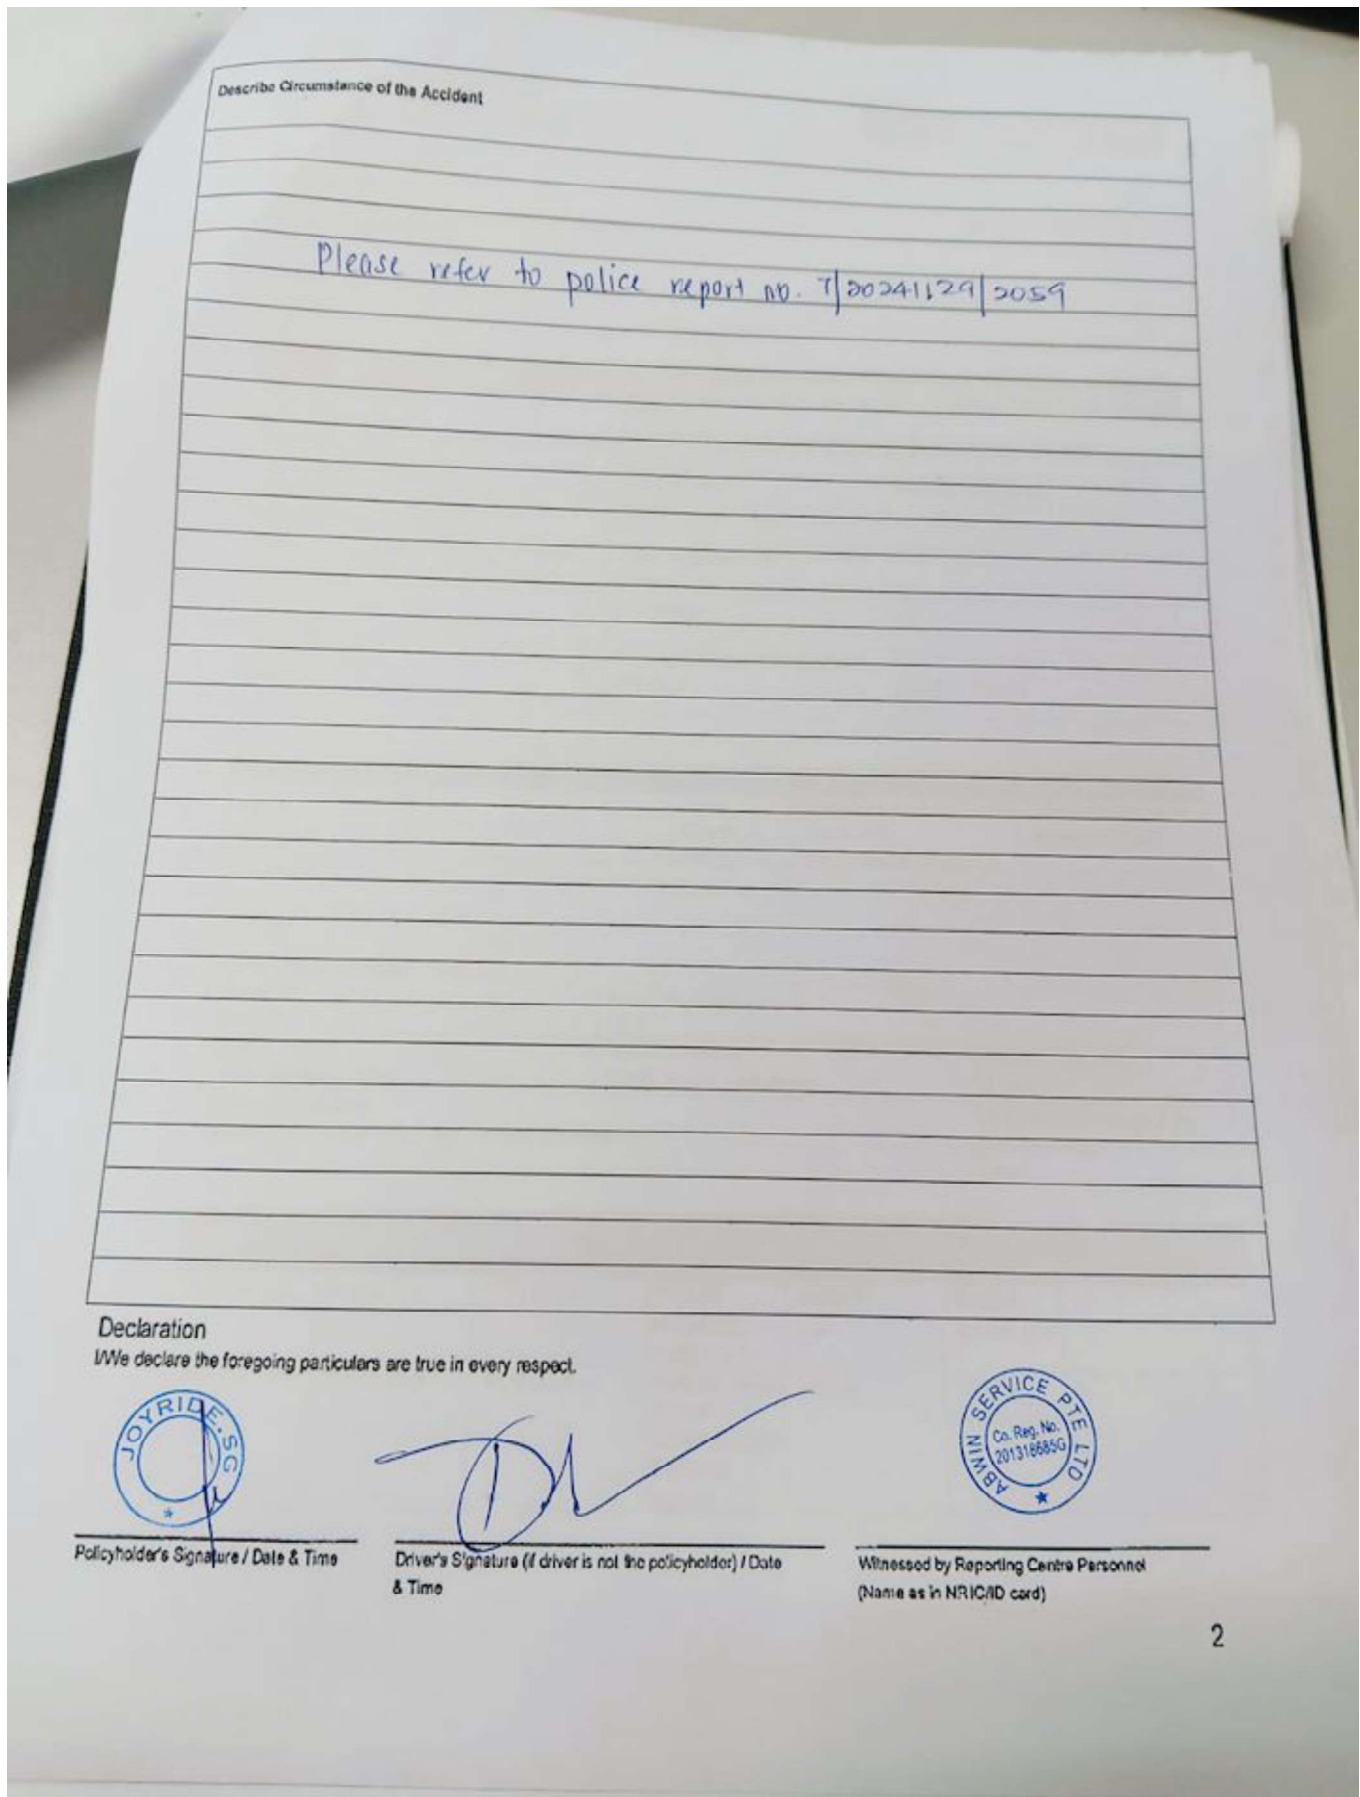 Describe Circumstance of the Accident
Please refer to police report no. T/20241129/2059
Declaration
I/We declare the foregoing particulars are true in every respect.
JOYRIDE.SG
ABWIN SERVICE PTE LTD
Co. Reg. No.
201318685G
Policyholder's Signature / Date & Time
Driver's Signature (if driver is not the policyholder) / Date
& Time
Witnessed by Reporting Centre Personnel
(Name as in NRIC/ID card)
2